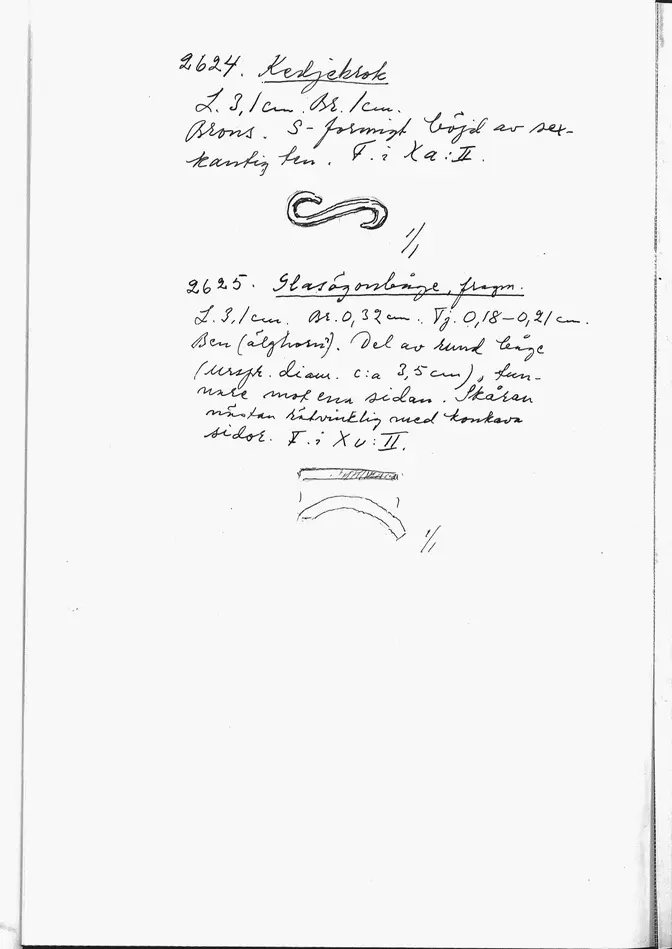 2624. Kedjekrok
L. 3,1 cm. Br. 1 cm.
Brons. S-formigt böjd av sex-
kantig ten. F. i Xa:II.
1/1
2625. Glasögonbåge, fragm.
L. 3,1 cm. Br. 0,32 cm. Tj. 0,18-0,21 cm.
Ben (älghorn?). Del av rund båge
(urspr. diam. c:a 3,5 cm), tun-
nare mot ena sidan. Skåran
nästan rätvinklig med konkava
sidor. F. i Xv:II.
1/1